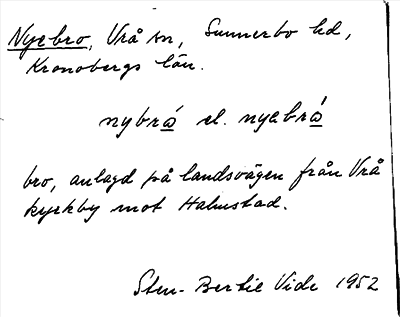 Nyebro, Vrå sn, Sunnerbo hd,
Kronobergs län.
nybrα̊́ el. nyebrα̊́
bro, anlagd på landsvägen från Vrå
kyrkby mot Halmstad.
Sten-Bertil Vide 1952